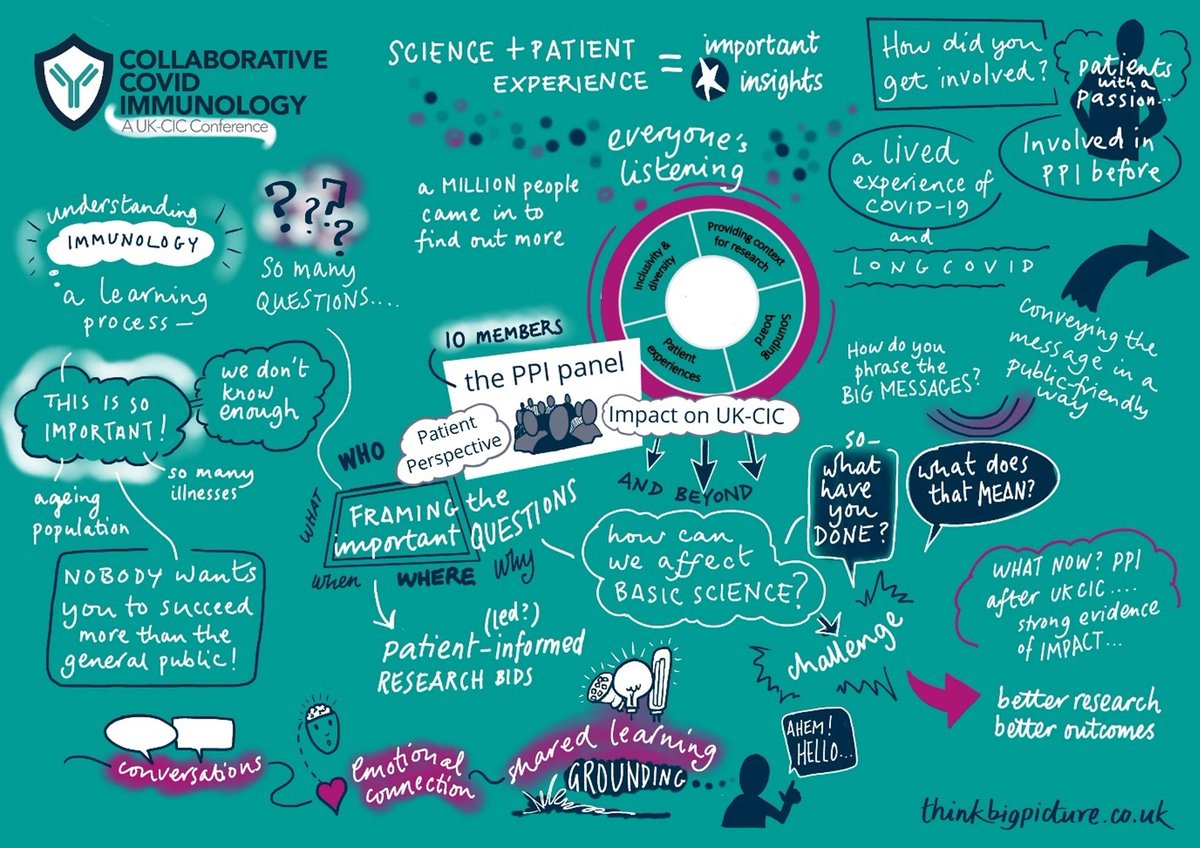 COLLABORATIVE
COVID
IMMUNOLOGY
A UK-CIC Conference
SCIENCE + PATIENT
EXPERIENCE
= important
insights
How did you
get involved?
patients
with a
passion...
everyone's
listening
a lived
experience of
COVID-19
Involved in
PPI before
and
LONG COVID
a MILLION people
came in to
find out more
understanding
IMMUNOLOGY
a learning
process —
? ? ? ?
So many
QUESTIONS....
Inclusivity &
diversity
Providing context
for research
Sounding
board
Patient
experiences
10 MEMBERS
the PPI panel
Patient
Perspective
Impact on UK-CIC
AND BEYOND
How do you
phrase the
BIG MESSAGES?
Conveying the
message in a
public-friendly
way
THIS IS SO
IMPORTANT!
we don't
know
enough
ageing
population
so many
illnesses
NOBODY wants
you to succeed
more than the
general public!
WHO
WHAT
FRAMING the
important QUESTIONS
when
WHERE
why
(led?)
patient-informed
RESEARCH BIDS
how can
we affect
BASIC SCIENCE?
so-
what
have
you
DONE?
what does
that MEAN?
challenge
WHAT NOW? PPI
after UKCIC....
strong evidence
of IMPACT...
better research
better outcomes
conversations
emotional
connection
shared learning
GROUNDING
AHEM!
HELLO...
thinkbigpicture.co.uk